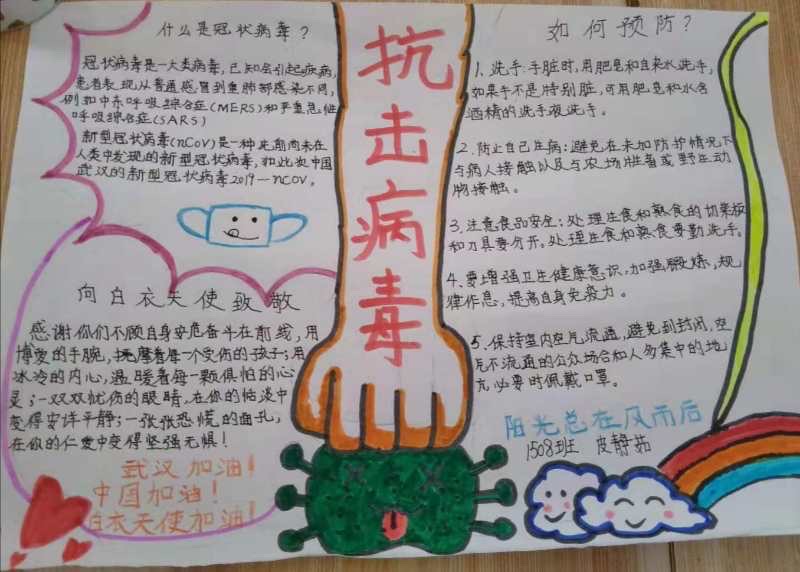 什么是冠状病毒？
冠状病毒是一大类病毒，已知会引起疾病，
患者表现从普通感冒到重肺部感染不同，
例如中东呼吸综合症(MERS)和严重急性
呼吸综合症(SARS)
新型冠状病毒(nCoV)是一种先前尚未在
人类中发现的新型冠状病毒，如此次中国
武汉的新型冠状病毒2019—nCOV。
向白衣天使致敬
感谢你们不顾自身安危奋斗在前线，用
博爱的手腕，抚摩着每一个受伤的孩子；用
冰冷的内心，温暖着每一颗俱怕的心
灵；一双双忧伤的眼睛，在你的恬淡中
变得安详平静；一张张恐慌的面孔，
在你的仁爱中变得坚强无惧！
武汉加油！
中国加油！
白衣天使加油！
抗击病毒
如何预防？
1、洗手：手脏时，用肥皂和自来水洗手，
如果手不是特别脏，可用肥皂和水含
酒精的洗手液洗手。
2、防止自己生病：避免在未加防护情况下
与病人接触以及与农场牲畜或野生动
物接触。
3、注意食品安全：处理生食和熟食的切菜板
和刀具要分开。处理生食和熟食要勤洗手。
4、要增强卫生健康意识，加强锻炼，规
律作息，提高自身免疫力。
5、保持室内空气流通，避免到封闭，空
气不流通的公众场合和人多集中的地
方，必要时佩戴口罩。
阳光总在风雨后
1508班 皮静茹